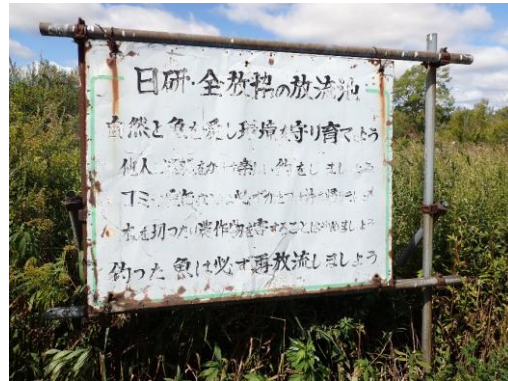 日研・全放協の放流池
自然と魚を愛し環境を守り育てよう
他人に迷惑をかけず楽しい釣をしましょう
ゴミ
木を切ったり農作物を害することはやめましょう
釣った魚は必ず再放流しましょう